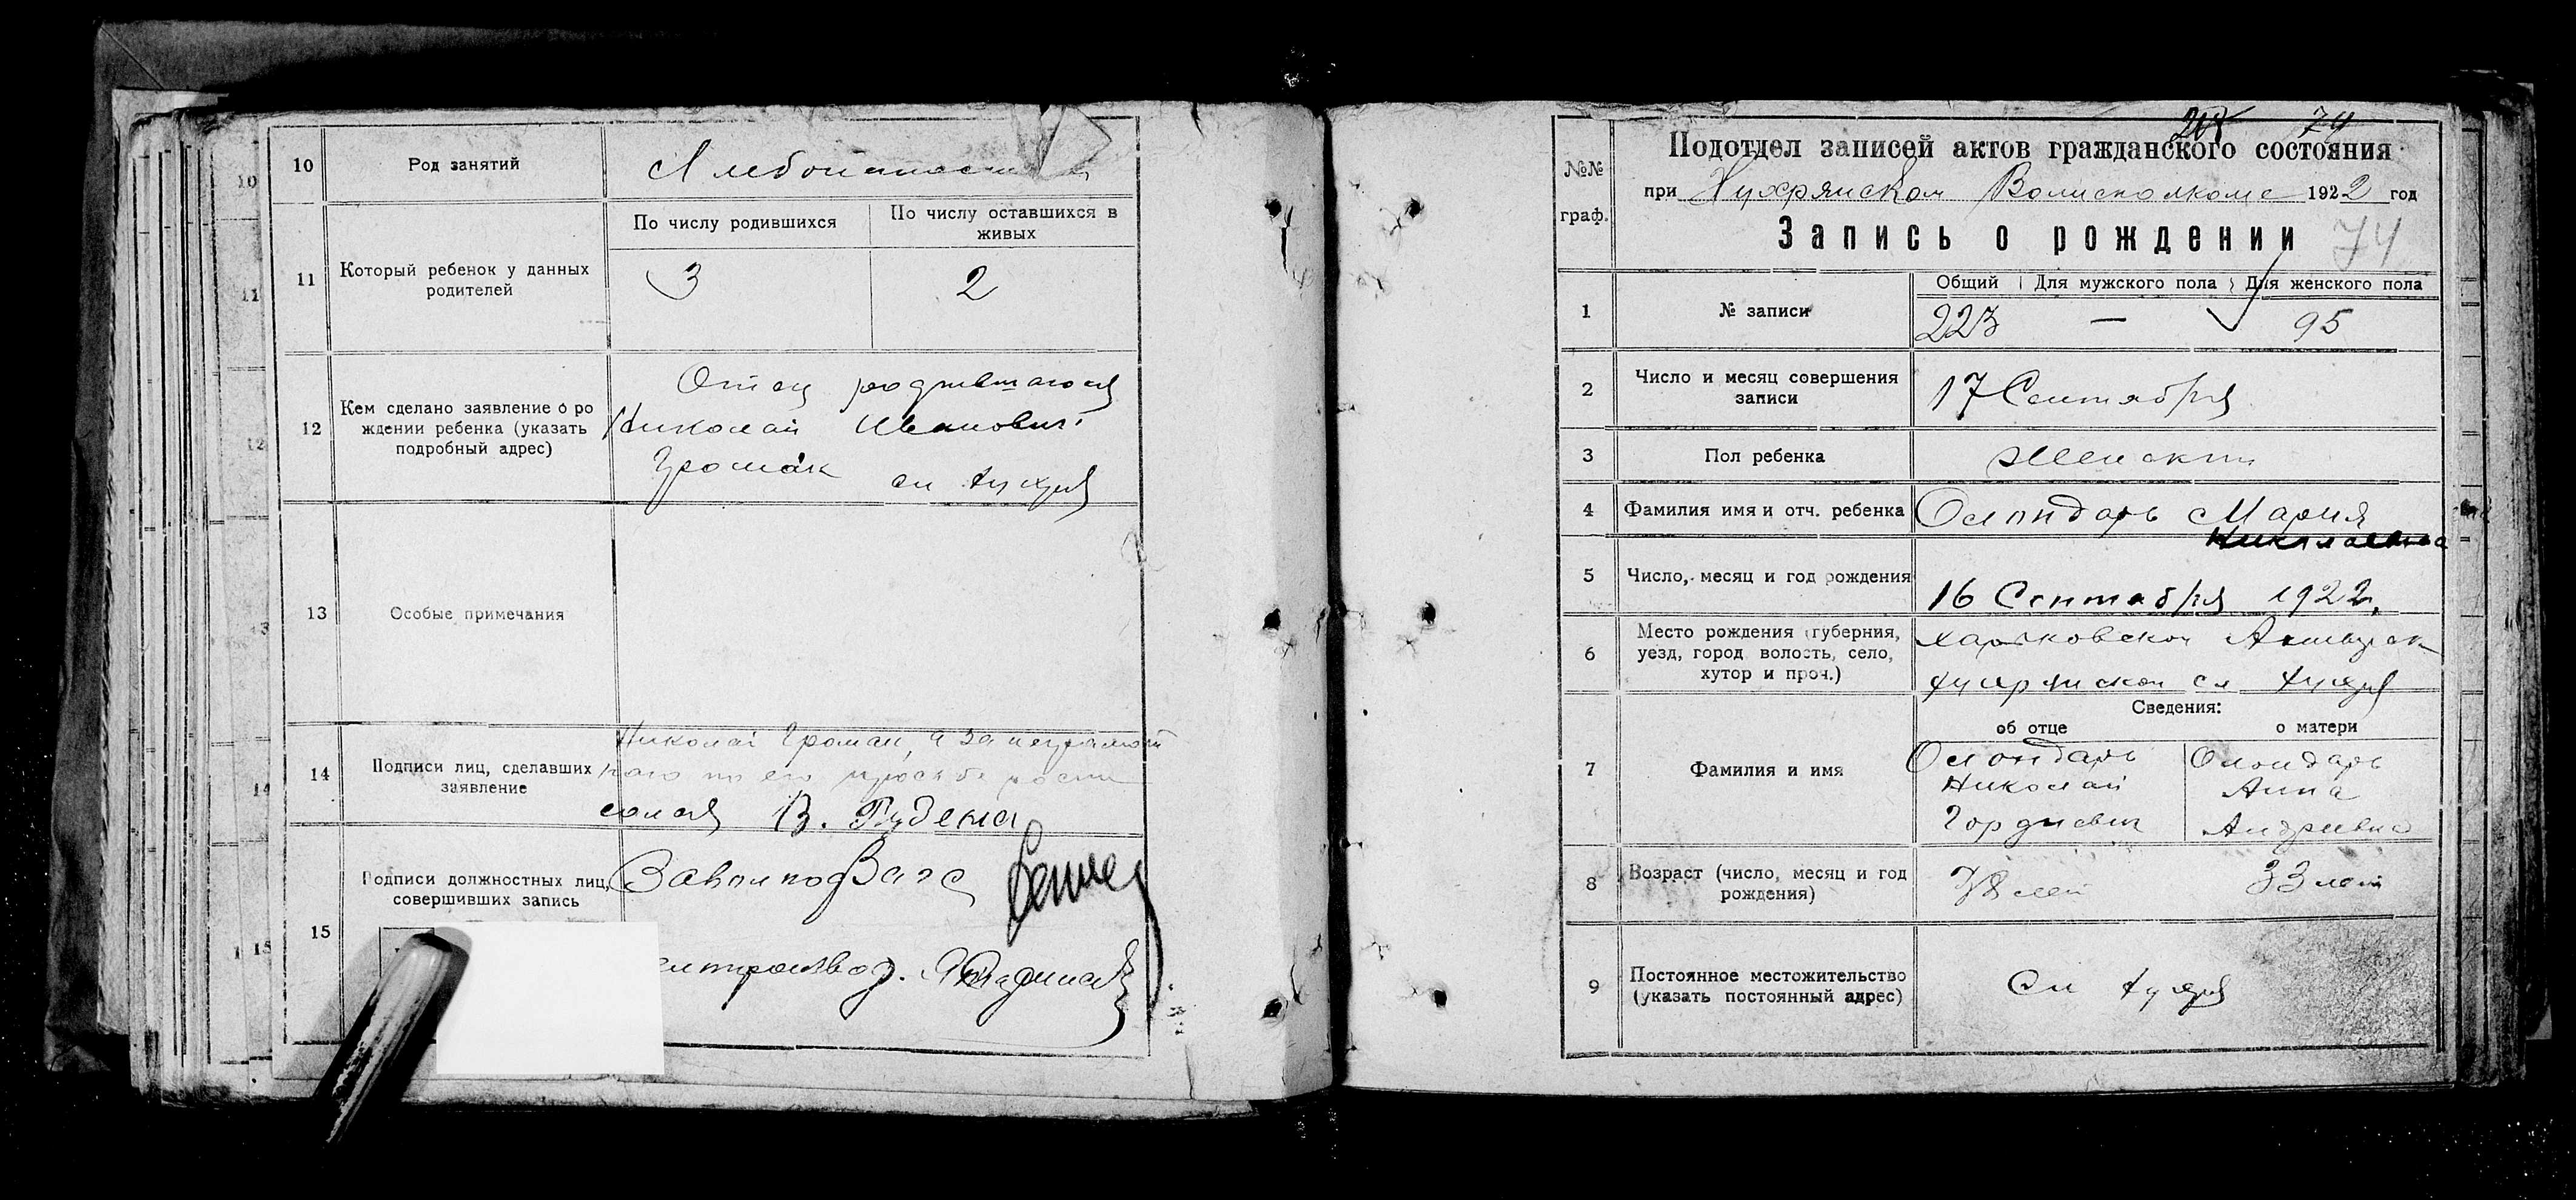 10
Род занятий
11
Который ребенок у данных
родителей
По числу родившихся
По числу оставшихся в
живых
3
2
12
Кем сделано заявление о ро
ждении ребенка (указать
подробный адрес)
Отец родившагося
Николай Иванович
Громак сл Хухря
13
Особые примечания
14
Подписи лиц, сделавших
заявление
Николай Громак, а за неграмот
ного по его просьбе
В. Руденко
15
Подписи должностных лиц,
совершивших запись
74
№№
граф.
Подотдел записей актов гражданского состояния
при Хухрянском Волисполкоме 1922 год
Запись о рождении
74
1
№ записи
Общий
Для мужского пола
Для женского пола
223
—
95
2
Число и месяц совершения
записи
17 Сентября
3
Пол ребенка
Женский
4
Фамилия имя и отч. ребенка
Мария
Николаевна
5
Число, месяц и год рождения
16 Сентября 1922
6
Место рождения (губерния,
уезд, город волость, село,
хутор и проч.)
Харьковской Ахтырск
Хухрянской сл Хухря
7
Фамилия и имя
Сведения:
об отце
о матери
Николай
Гордиевич
Анна
Андреевна
8
Возраст (число, месяц и год
рождения)
38 лет
33 лет
9
Постоянное местожительство
(указать постоянный адрес)
Сл Хухря
10
11
12
13
14
15